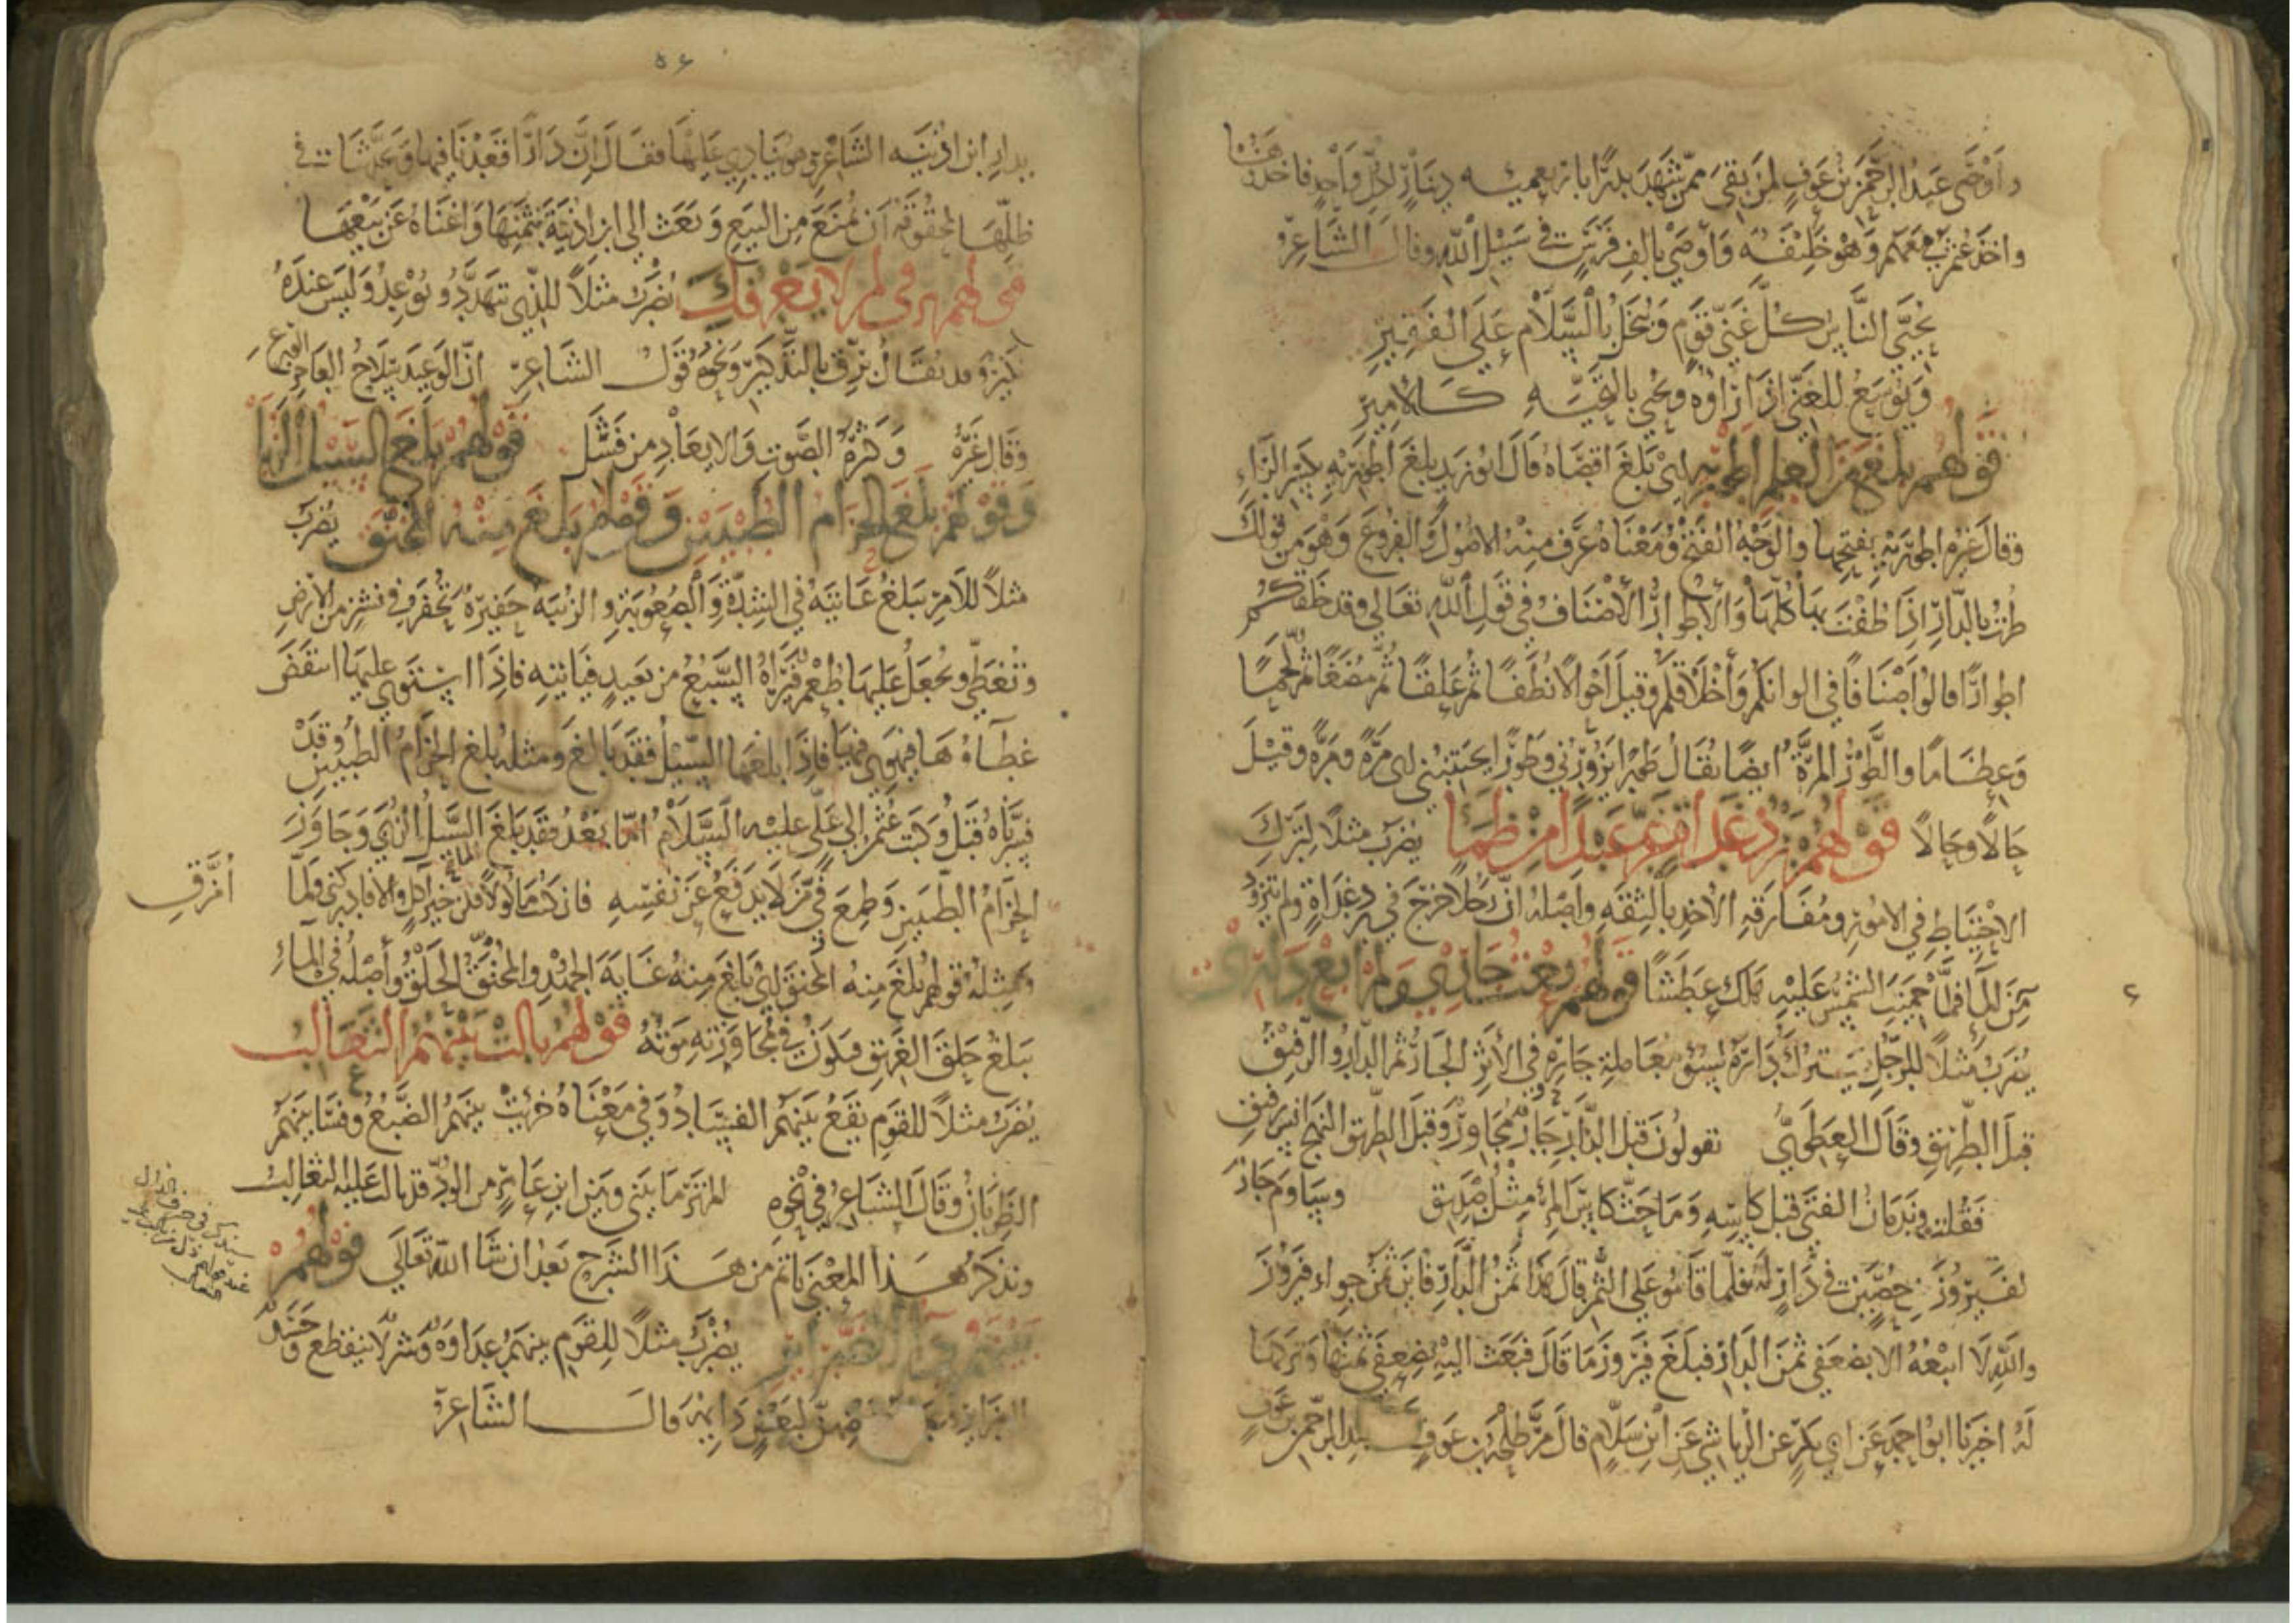 وأوصى عبد الرحمن بن عوف لمن بقي ممن شهد بدرًا باربعمئه دينار لكل واحد فاخذوها
واخذ عثمن معهم وهو خليفه وأوصى بالف فرس في سبيل الله وقال الشاعر
يحيّى الناس كل غنيّ قوم ويبخل بالسلام على الفقير
ويوسع للغنيّ اذا رأوه ويحيى بالتحيّه كالامير
قولهم بلغ من العلم اطوريه اي بلغ اقصاه قال ابو زيد بلغ اطوريه بكسر الراء
وقال غيره اطوريه بفتحها والوجه الفتح ومعناه عرف منه الاصول والفروع وهو من قولك
طرت بالدار اذا طفت بها كلها والأطوار الأصناف وفي قول الله تعالى وقد خلقكم
اطوارًا قالوا اصنافًا في الوانكم وأخلاقكم وقيل احوالا نطفًا ثم علقًا ثم مضغًا ثم لحمًا
وعظامًا والطور المرّة ايضا يقال طورا يزورني وطورًا يجتنبني اي مرّة ومرّه وقيل
حالًا وحالًا قولهم برد غداة غرّ عبدًا من ظمإ يضرب مثلًا لترك
الاحتياط في الامور ومفارقه الاخذ بالثقه واصله انّ رجلا خرج في برد غداة ولم يتزود
من الماء فلما حميت الشمس عليه هلك عطشًا قولهم بعت جاري ولم ابع داري
يضرب مثلًا للرجل يترك داره لسوء معاملة جاره في الأثر الجار ثم الدار والرفيق
قبل الطريق وقال العطوي تقولون قبل الدار جار مجاور وقبل الطريق النهج انس رفيق
فقلت وندمان الفتى قبل كاسه وما حث كاس المرء مثل صديق وساوم جار
لفيروز بن حصين في دار له فلما قاموا على الثمن قال هذا ثمن الدار فاين ثمن جوار فيروز
والله لا ابيعه الا بضعفي ثمن الدار فبلغ فيروز ما قال فبعث اليه بضعفي ثمنها وتركها
له اخبرنا ابو احمد عن ابي بكر عن الرياشي عن ابن سلام قال مر طلحه بن عوف عبد الرحمن بن عوف
٥٦
بدار ابن اذينه الشاعر وهو ينادي عليها فقال ان دارًا قعدنا فيها وتحدثنا في
ظلها لمحقوقه ان تمنع من البيع وبعث الى ابن اذينة بثمنها واغناه عن بيعها
قولهم برقي لمن لا يعرفك يضرب مثلًا للذي يتهدد ويوعد وليس عنده
نكير وقد يقال برّق بالتذكير ونحوه قول الشاعر انّ الوعيد سلاح العاجز الورع
وقال غيره وكثرة الصوت والايعاد من فشل قولهم بلغ السيل الزبا
وقولهم بلغ الحزام الطبيين وقولهم بلغ منه المخنق يضرب
مثلًا للامر يبلغ غايته في الشدة والصعوبة والزبيه حفيره تحفر في نشز من الأرض
وتغطى ويجعل عليها طعم فيراه السبع من بعيد فيأتيه فإذا استوى عليها انتقض
غطاءها فيهوي فيها فاذا بلغها السيل فقد بالغ ومثله بلغ الحزام الطبيين وقد
فسرناه قبل وكتب عثمن الى علي عليه السلام امّا بعد فقد بلغ السيل الزبي وجاوز
الحزام الطبيين وطمع في من لا يدفع عن نفسه فان كنت ماكولًا فكن خير آكل والا فادركني ولمّا
أمزّق
ومثله قولهم بلغ منه المخنق اي بلغ منه غاية الجهد والمخنق الحلق وأصله في الماء
يبلغ حلق الغريق فيكون في مجاوزته موته قولهم بالت بينهم الثعالب
يضرب مثلًا للقوم يقع بينهم الفساد وفي معناه خريت بينهم الضبع وفسا بينهم
الظربان وقال الشاعر في نحوه الم تر ما بيني وبين ابن عامر من الودّ قد بالت عليه الثعالب
ونذكر هذا المعنى باتم من هذا الشرح بعد ان شا الله تعالى قولهم
بينهم داء الضرائر يضرب مثلًا للقوم بينهم عداوه وشر لا ينقطع وحسد
الضرائر لبعض دائم وقال الشاعر